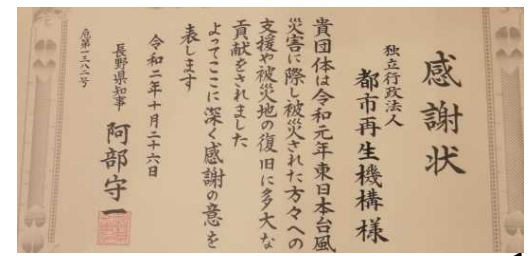 感謝状
独立行政法人
都市再生機構 様
貴団体は令和元年東日本台風
災害に際し被災された方々への
支援や被災地の復旧に多大な
貢献をされました
よってここに深く感謝の意を
表します
令和二年十月二十六日
長野県知事 阿部守一
危第一三八二号